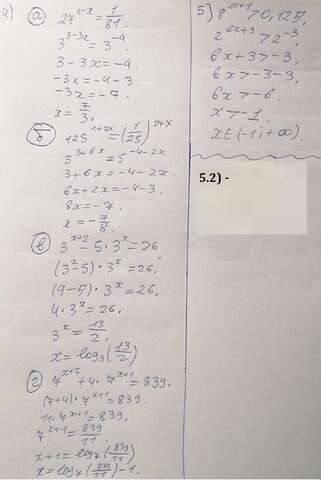 4) а) 27^(1-x) = 1/81.
3^(3-3x) = 3^(-4).
3 - 3x = -4.
-3x = -4 - 3.
-3x = -7.
x = 7/3.
б) 125^(1+2x) = (1/25)^(2+x)
5^(3+6x) = 5^(-4-2x)
3 + 6x = -4 - 2x.
6x + 2x = -4 - 3.
8x = -7.
x = -7/8.
в) 3^(x+2) - 5 · 3^x = 26
(3^2 - 5) · 3^x = 26.
(9 - 5) · 3^x = 26.
4 · 3^x = 26.
3^x = 13/2.
x = log₃(13/2)
г) 7^(x+2) + 4 · 7^(x+1) = 839.
(7+4) · 7^(x+1) = 839.
11 · 7^(x+1) = 839.
7^(x+1) = 839/11.
x + 1 = log₇(839/11)
x = log₇(839/11) - 1.
5) 8^(2x+1) > 0,125.
2^(6x+3) > 2^(-3).
6x + 3 > -3.
6x > -3 - 3.
6x > -6.
x > -1.
x ∈ (-1; +∞).
5.2) -